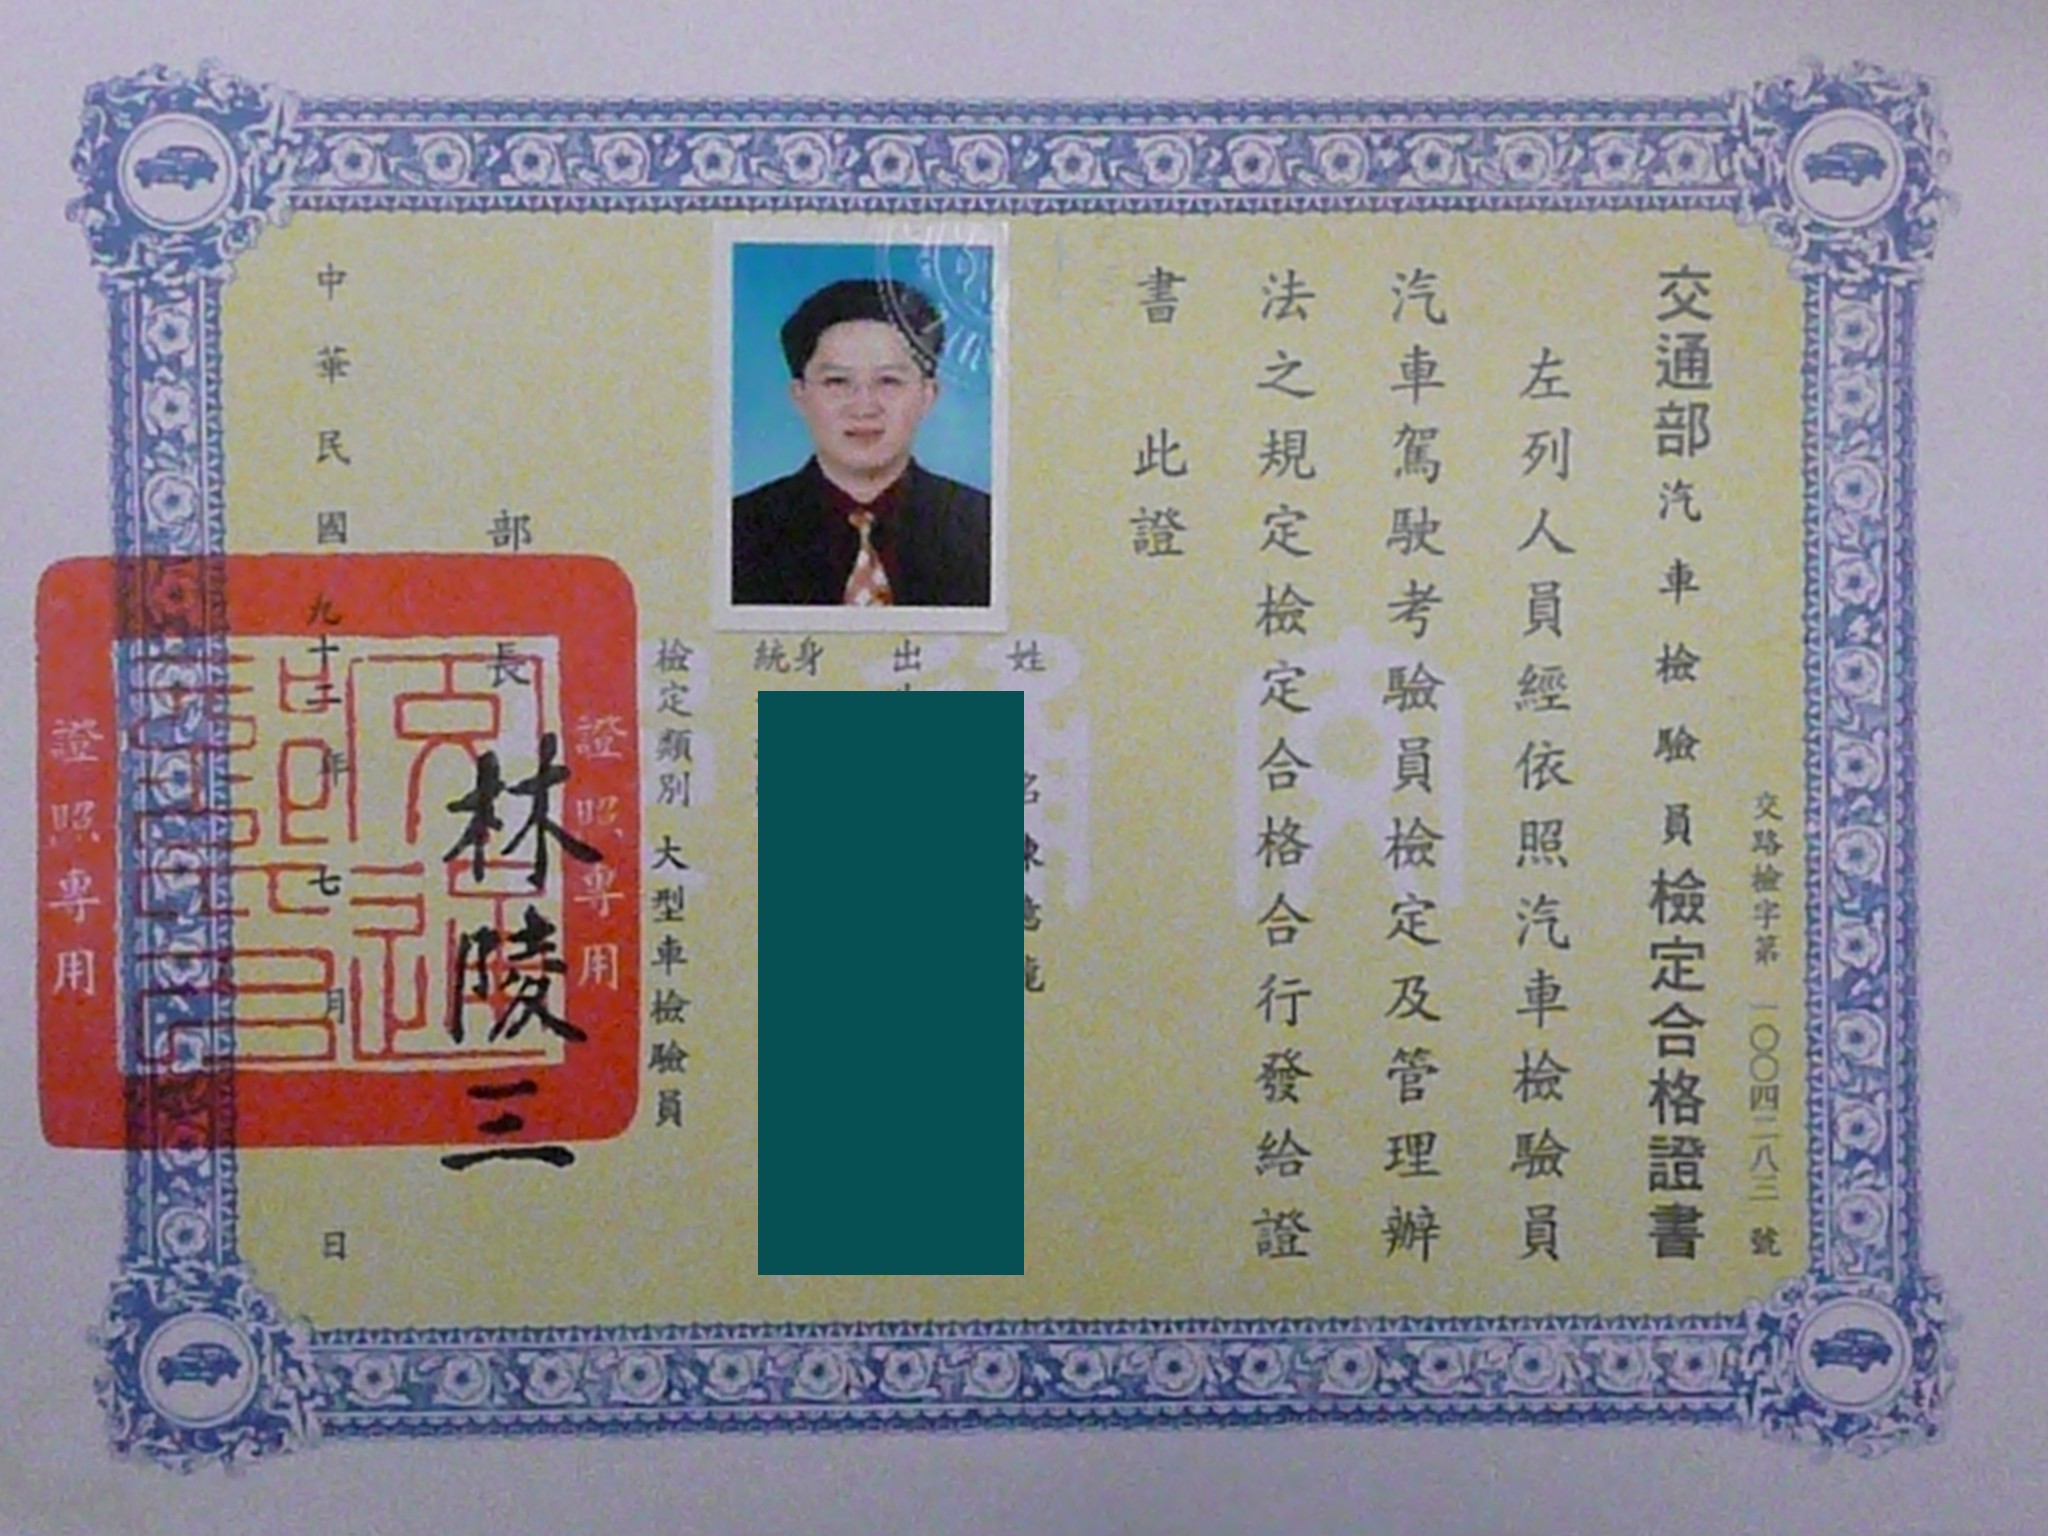 交路檢字第一〇〇四二八三號
交通部汽車檢驗員檢定合格證書
左列人員經依照汽車檢驗員
汽車駕駛考驗員檢定及管理辦
法之規定檢定合格合行發給證
書 此證
姓
出
身
統
檢定類別 大型車檢驗員
部長 林陵三
中華民國九十二年七月 日
證照專用
證照專用